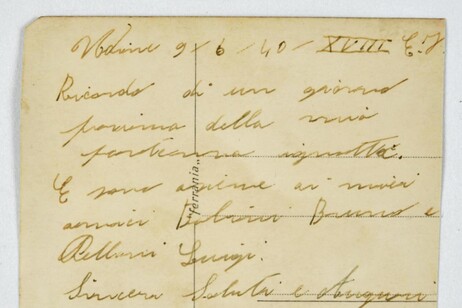 Udine 9-6-40-XVIII E.F.
Ricordo di un giorno
prorima della mia
partenna ignotta.
E sono asieme ai miei
amici Bruno e
Pelloni Luigi.
Sincera Saluti e Auguri
"Ferrania"